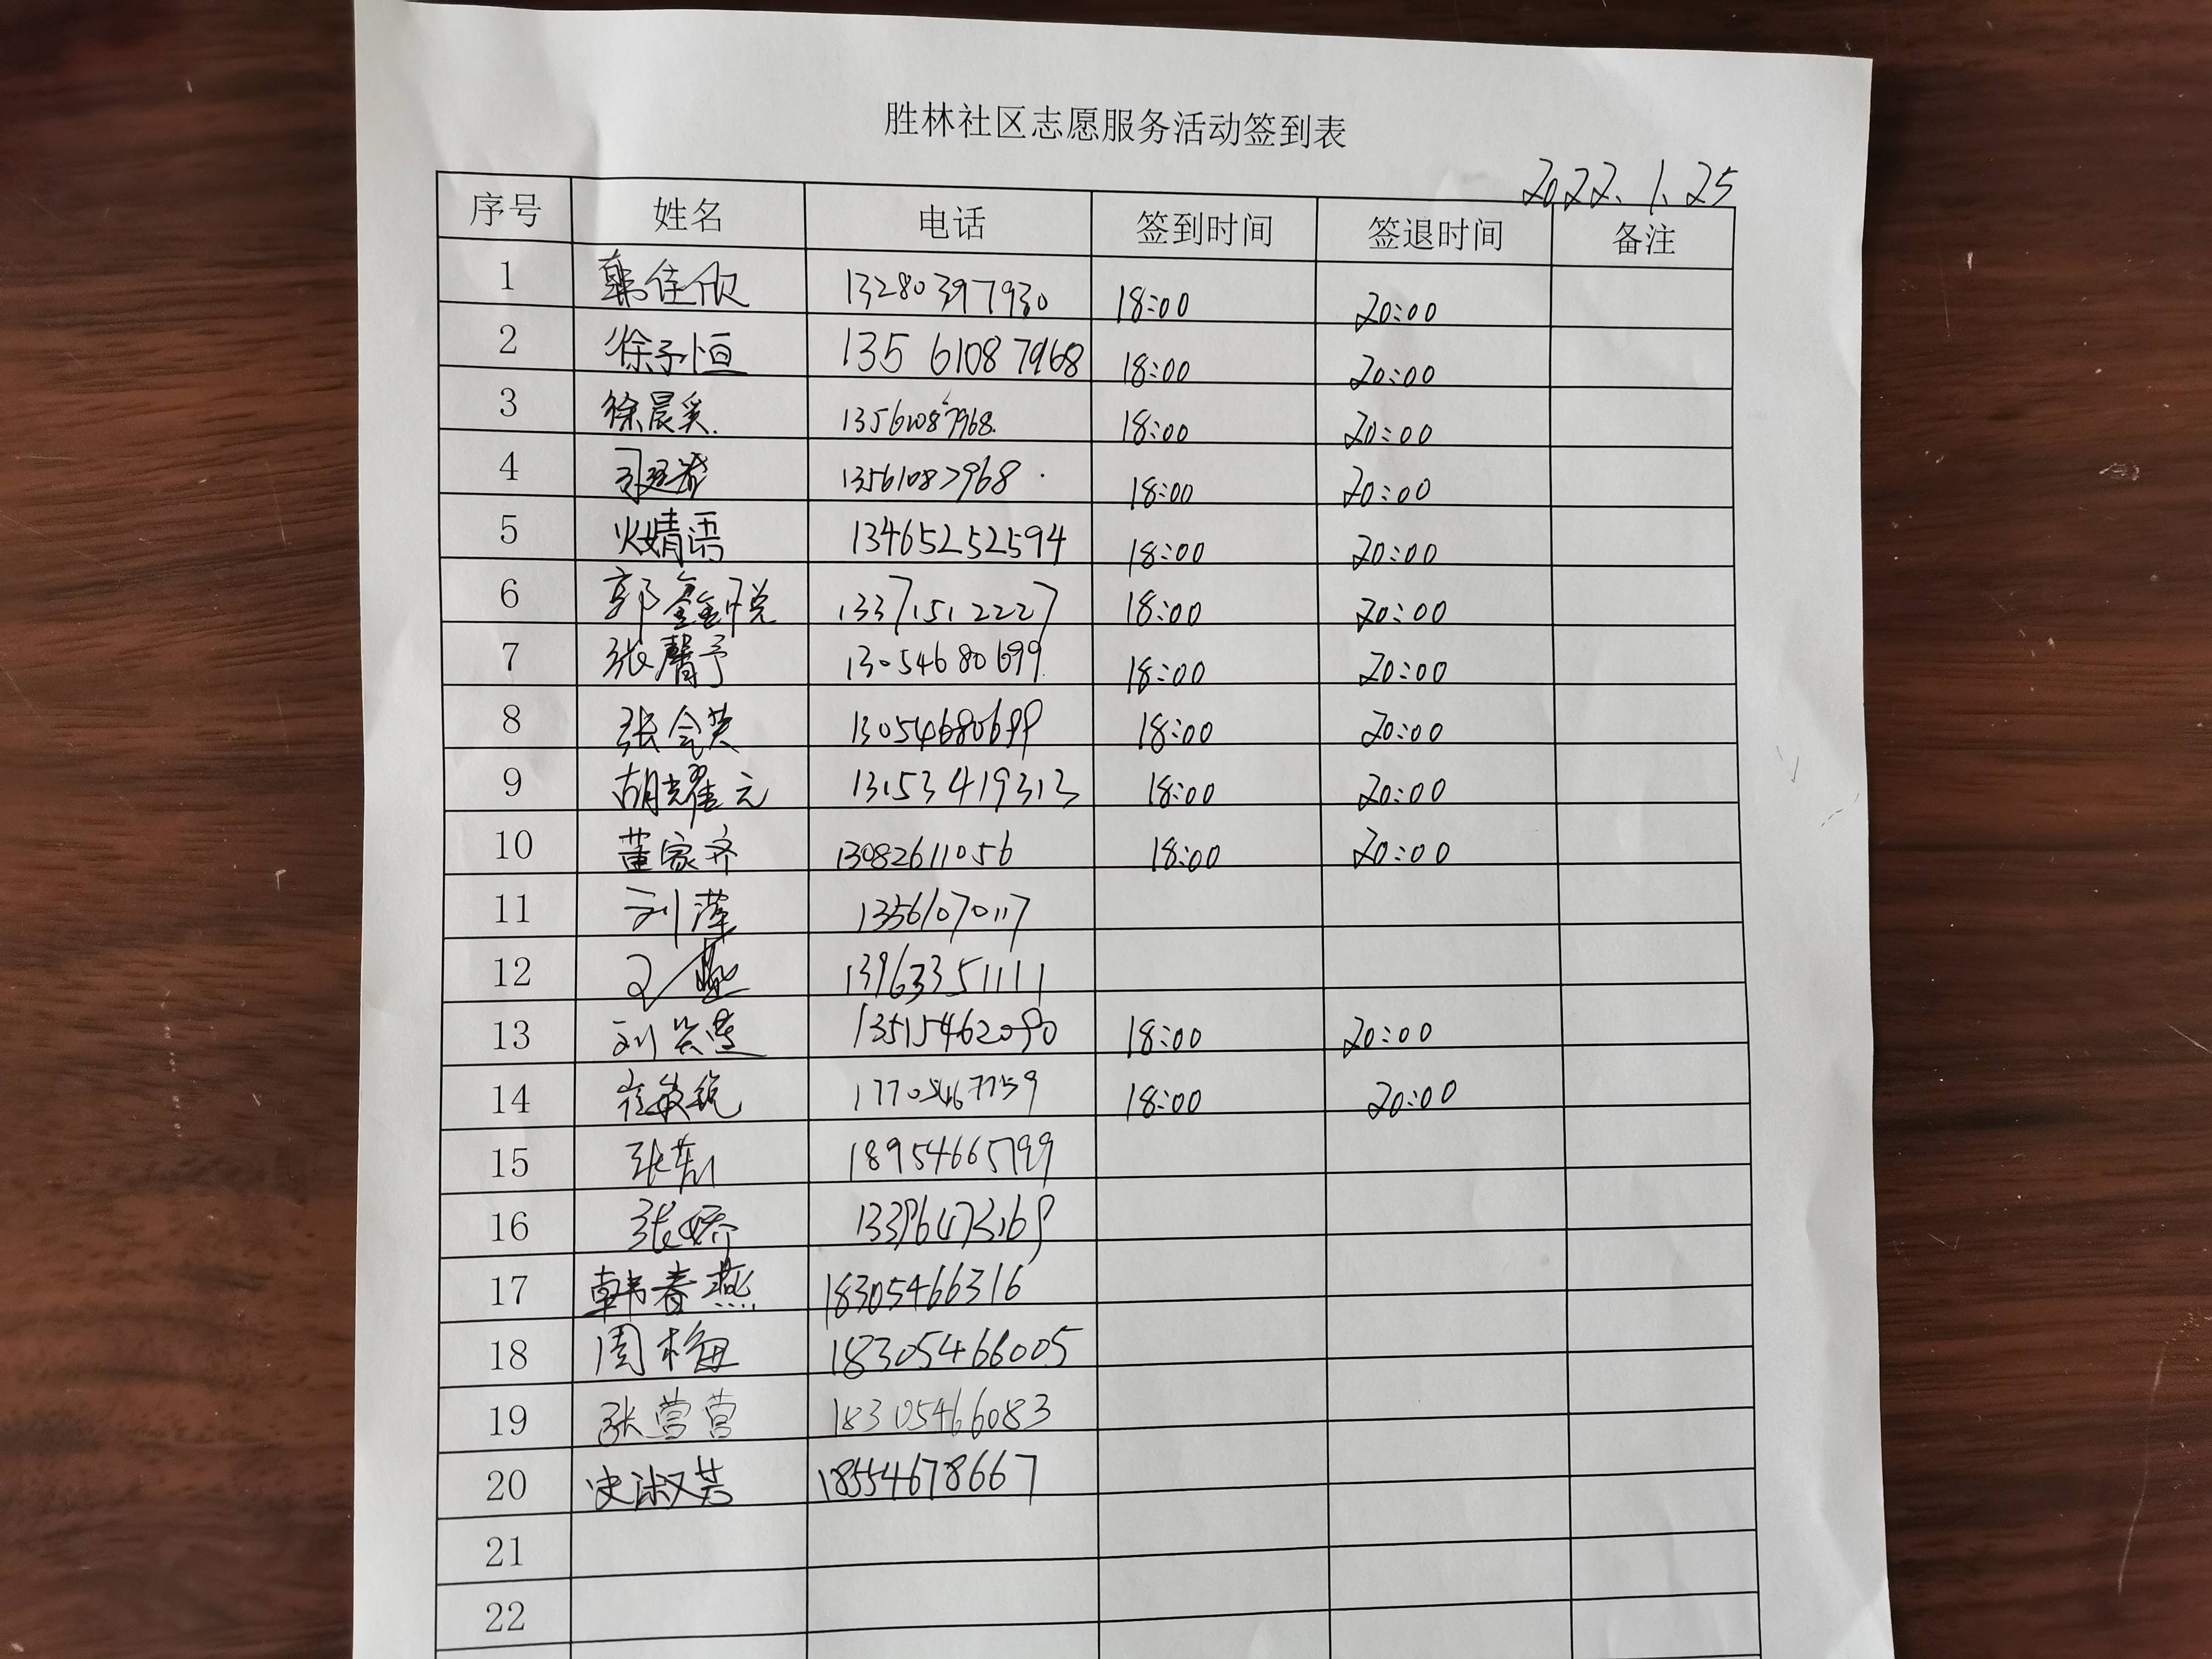 胜林社区志愿服务活动签到表
2022.1.25
序号 姓名 电话 签到时间 签退时间 备注
1 韩佳欣 13280397930 18:00 20:00
2 徐予恒 13561087968 18:00 20:00
3 徐晨奕. 13561087968. 18:00 20:00
4 13561087968 18:00 20:00
5 火婧语 13465252594 18:00 20:00
6 郭鑫悦 13371512227 18:00 20:00
7 张馨予 13054680699 18:00 20:00
8 张会英 13054680699 18:00 20:00
9 胡耀元 13153419313 18:00 20:00
10 董家齐 13082611056 18:00 20:00
11 刘萍 13561070117
12 13963351111
13 刘 莲 13515462090 18:00 20:00
14 崔敏锐 17705467759 18:00 20:00
15 张 18954665799
16 张娇
17 韩春燕 18305466316
18 周梅 18305466005
19 张营营 18305466083
20 史淑芳 18554678667
21
22